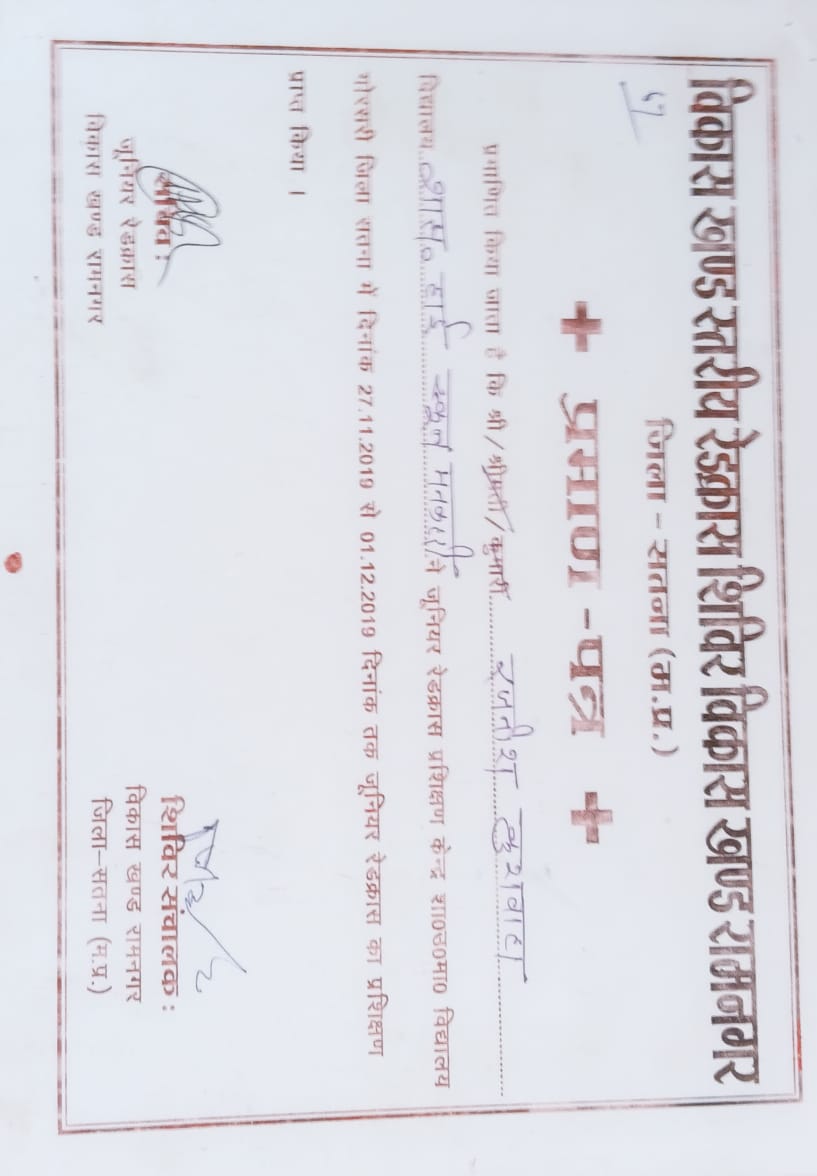 विकास खण्ड स्तरीय रेडक्रास शिविर विकास खण्ड रामनगर
67
जिला - सतना (म.प्र.)
+ प्रमाण -पत्र +
प्रमाणित किया जाता है कि श्री/श्रीमती/कुमारी रजनीश कुशवाहा
विद्यालय शास. हाई स्कूल मनकहरी ने जूनियर रेडक्रास प्रशिक्षण केन्द्र शा0उ0मा0 विद्यालय
गोरसरी जिला सतना में दिनांक 27.11.2019 से 01.12.2019 दिनांक तक जूनियर रेडक्रास का प्रशिक्षण
प्राप्त किया ।
सचिव :
जूनियर रेडक्रास
विकास खण्ड रामनगर
शिविर संचालक :
विकास खण्ड रामनगर
जिला–सतना (म.प्र.)